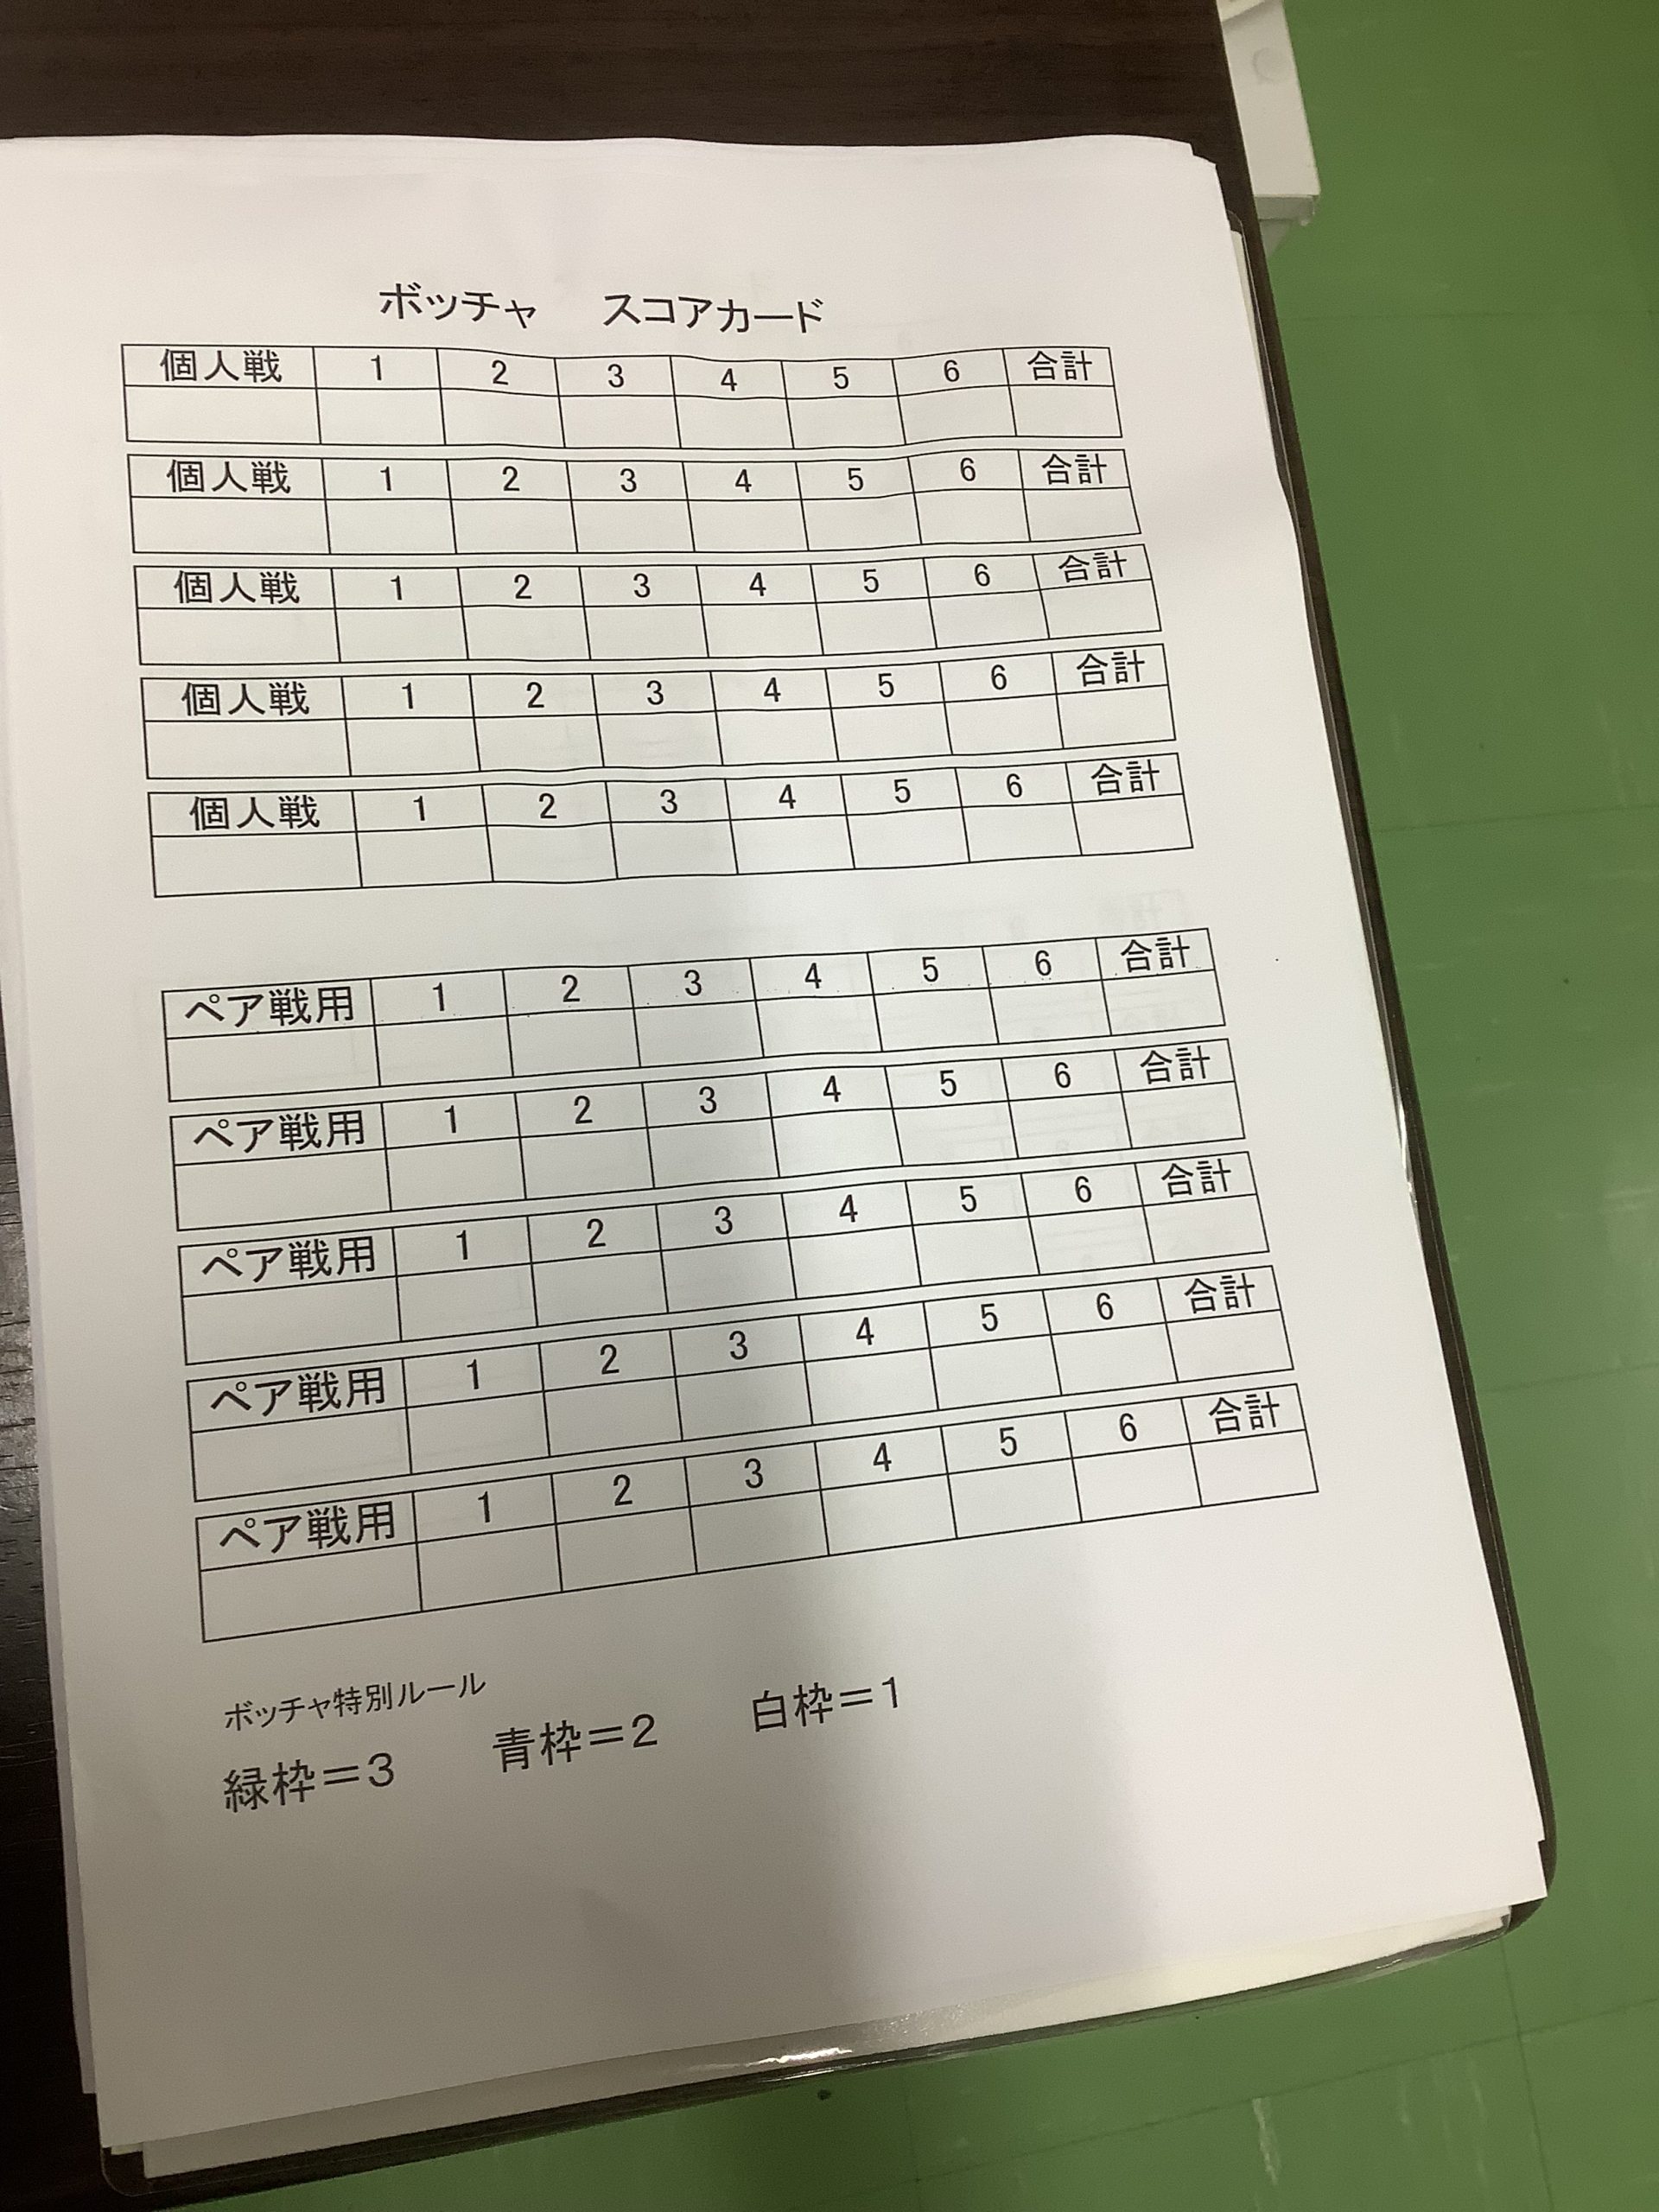 ボッチャ　スコアカード
個人戦 1 2 3 4 5 6 合計
個人戦 1 2 3 4 5 6 合計
個人戦 1 2 3 4 5 6 合計
個人戦 1 2 3 4 5 6 合計
個人戦 1 2 3 4 5 6 合計
ペア戦用 1 2 3 4 5 6 合計
ペア戦用 1 2 3 4 5 6 合計
ペア戦用 1 2 3 4 5 6 合計
ペア戦用 1 2 3 4 5 6 合計
ペア戦用 1 2 3 4 5 6 合計
ボッチャ特別ルール
緑枠＝3　青枠＝2　白枠＝1